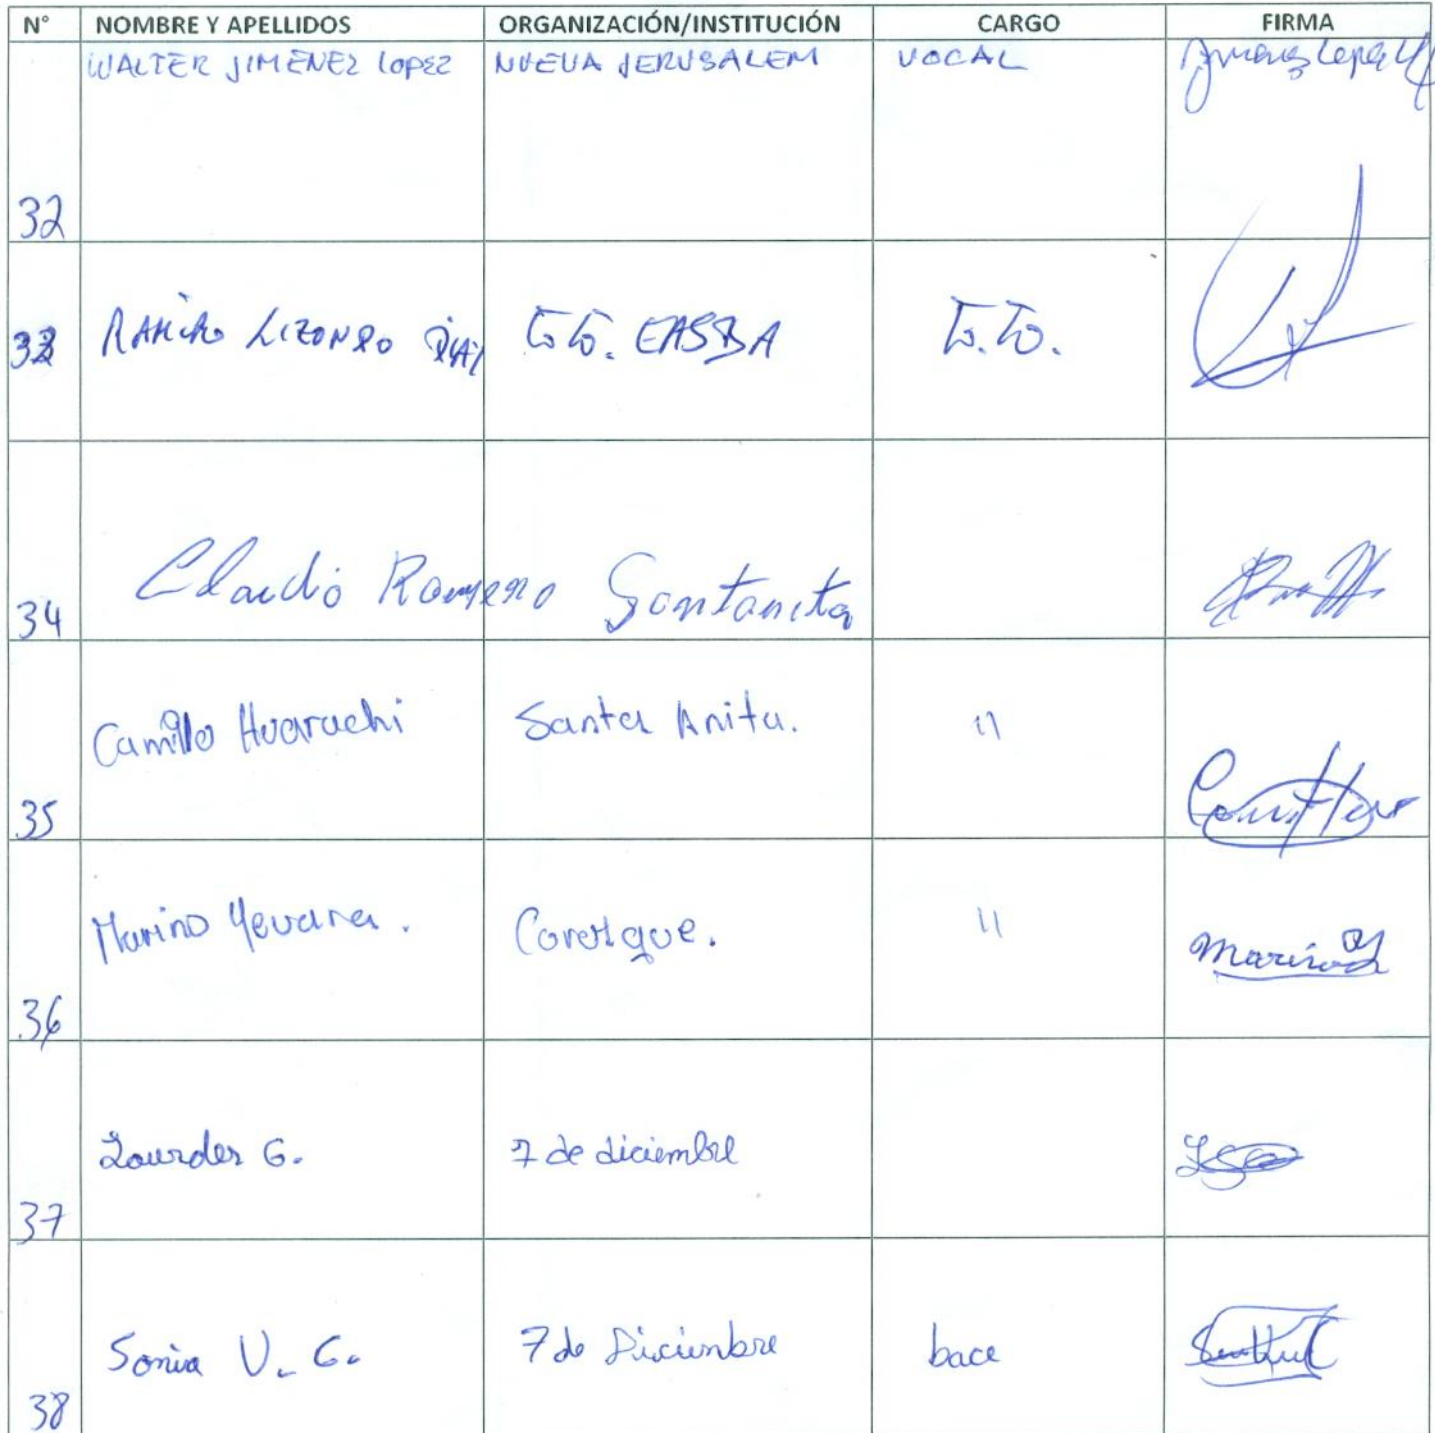 N° NOMBRE Y APELLIDOS ORGANIZACIÓN/INSTITUCIÓN CARGO FIRMA
WALTER JIMENEZ LOPEZ NUEVA JERUSALEM VOCAL
32
33 RAMIRO LIZONRO EASBA
34 Claudio Romero Santanita
Camilo Huarachi Santa Anita. 11
35
Marino Yevara. 11
36 Marino
Lourdes G. 7 de diciembre
37
Sonia V. G. 7 de Diciembre bace
38